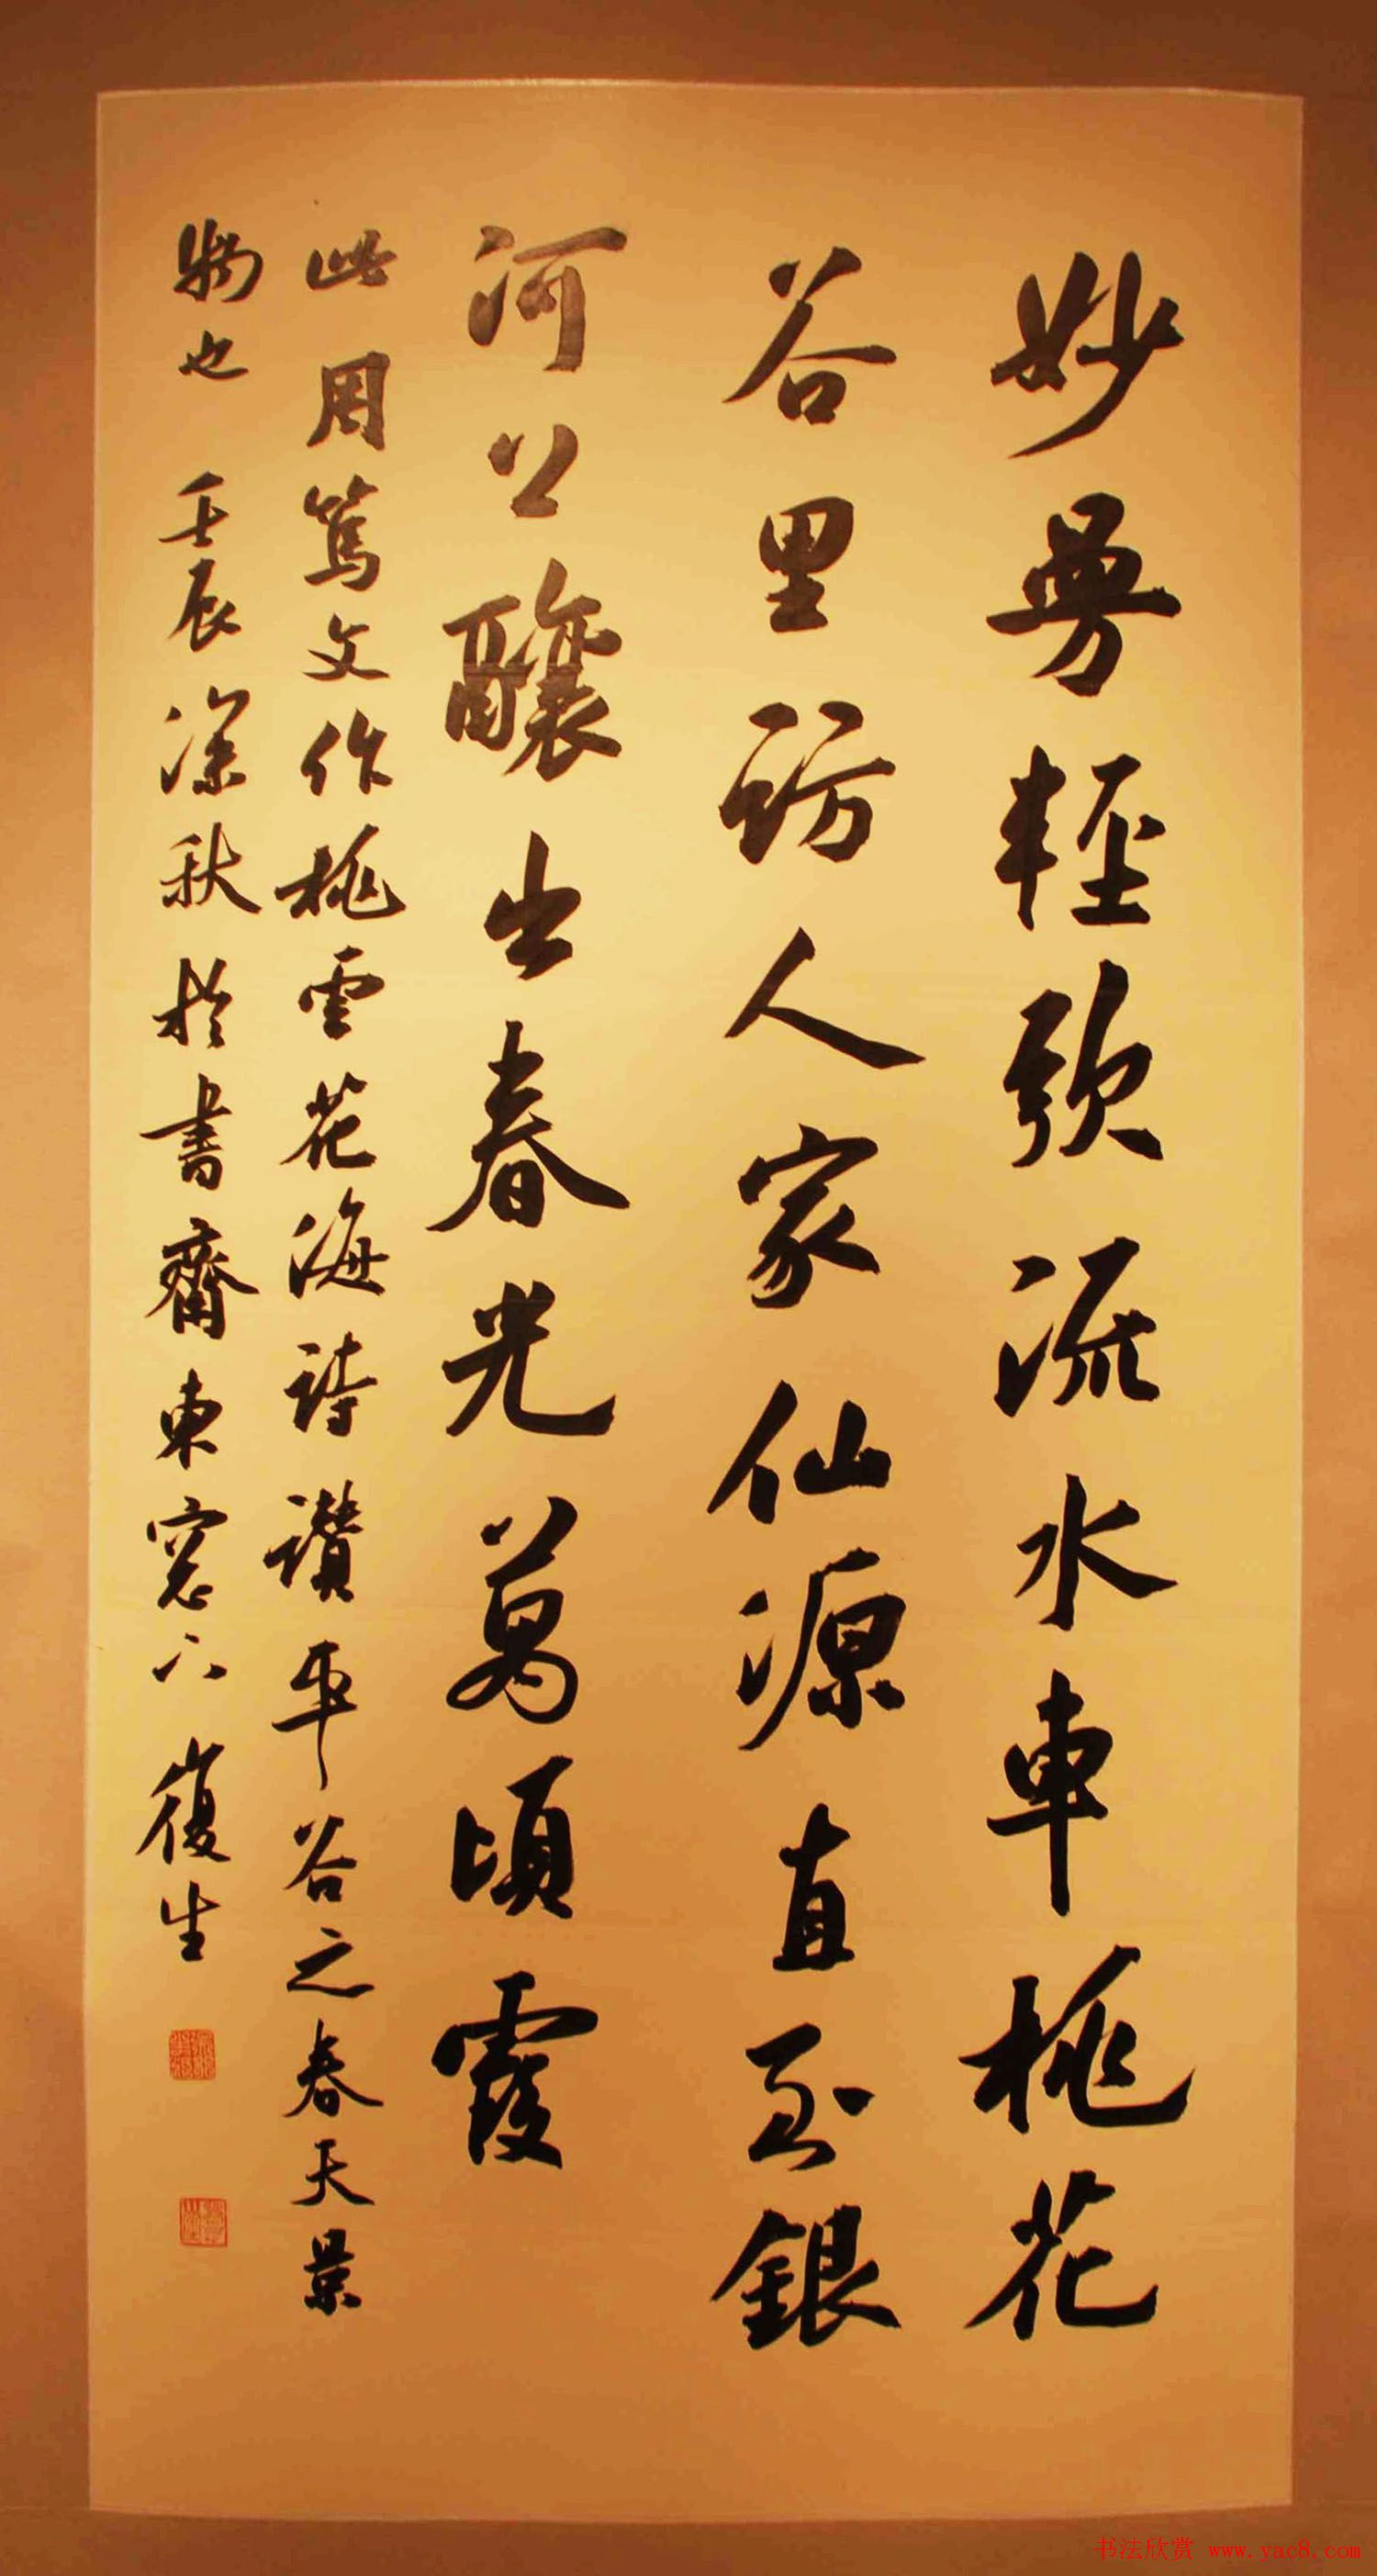 妙曼輕歌流水車桃花
谷里訪人家仙源直至銀
河公釀出春光萬頃霞
此周篤文作桃雲花海詩讚平谷之春天景
物也 壬辰深秋於書齋東窓下 復生
书法欣赏 www.yac8.com